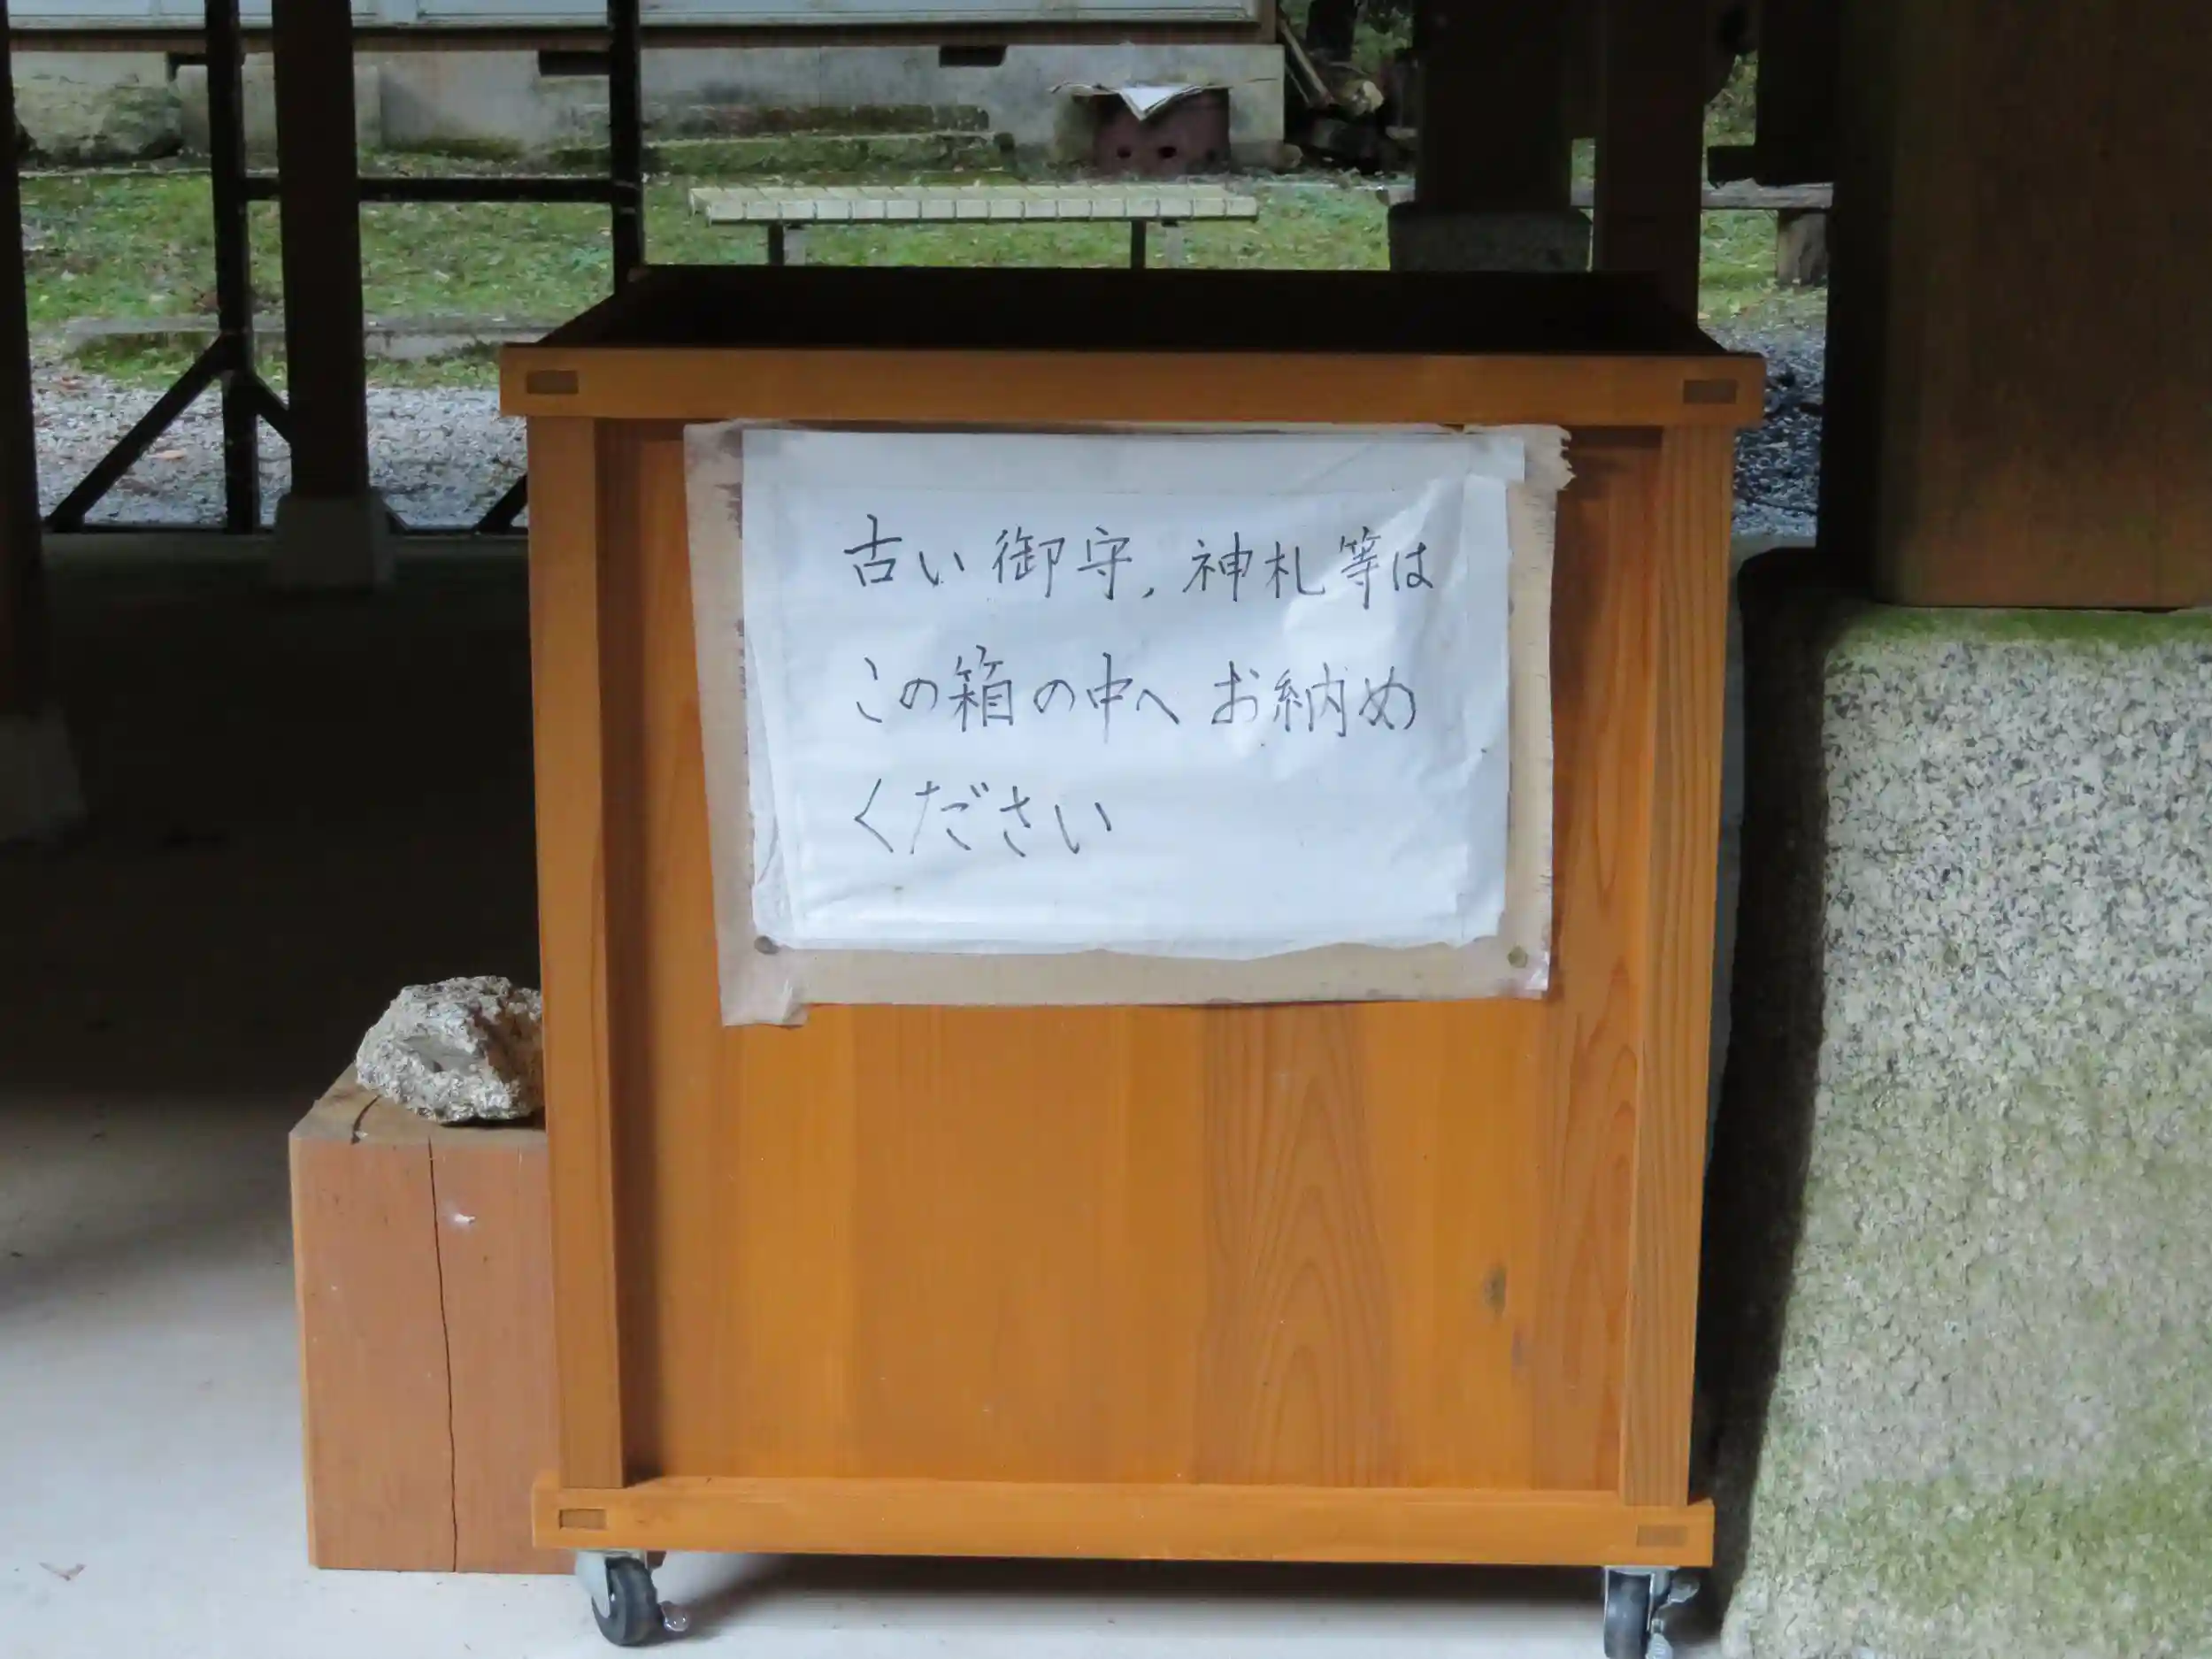 古い御守,神札等は
この箱の中へお納め
ください